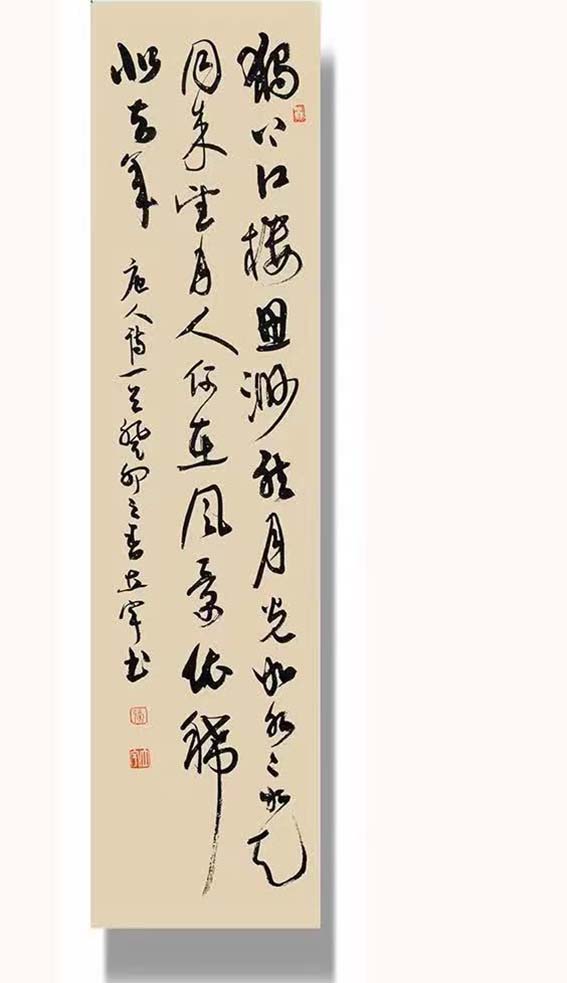 獨上江樓思渺然月光如水々如天
同来望月人何在風景依稀
似去年
唐人詩一首癸卯之春书